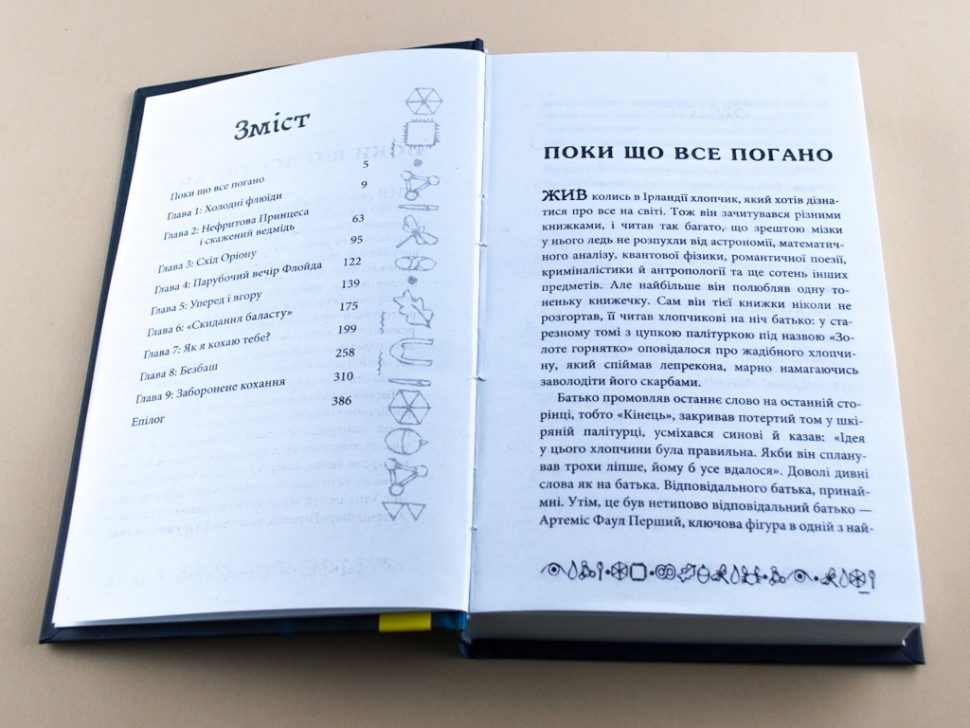 Зміст
Поки що все погано 5
Глава 1: Холодні флюїди 9
Глава 2: Нефритова Принцеса
і скажений ведмідь 63
Глава 3: Схід Оріону 95
Глава 4: Парубочий вечір Флойда 122
Глава 5: Уперед і вгору 139
Глава 6: «Скидання баласту» 175
Глава 7: Як я кохаю тебе? 199
Глава 8: Безбаш 258
Глава 9: Заборонене кохання 310
Епілог 386
ПОКИ ЩО ВСЕ ПОГАНО
ЖИВ колись в Ірландії хлопчик, який хотів дізна-
тися про все на світі. Тож він зачитувався різними
книжками, і читав так багато, що зрештою мізки
у нього ледь не розпухли від астрономії, математич-
ного аналізу, квантової фізики, романтичної поезії,
криміналістики й антропології та ще сотень інших
предметів. Але найбільше він полюбляв одну то-
неньку книжечку. Сам він тієї книжки ніколи не
розгортав, її читав хлопчикові на ніч батько: у ста-
резному томі з цупкою палітуркою під назвою «Зо-
лоте горнятко» оповідалося про жадібного хлопчи-
ну, який спіймав лепрекона, марно намагаючись
заволодіти його скарбами.
Батько промовляв останнє слово на останній сто-
рінці, тобто «Кінець», закривав потертий том у шкі-
ряній палітурці, усміхався синові й казав: «Ідея
у цього хлопчини була правильна. Якби він сплану-
вав трохи ліпше, йому б усе вдалося». Доволі дивні
слова як на батька. Відповідального батька, принай-
мні. Утім, це був нетипово відповідальний батько —
Артеміс Фаул Перший, ключова фігура в одній з най-